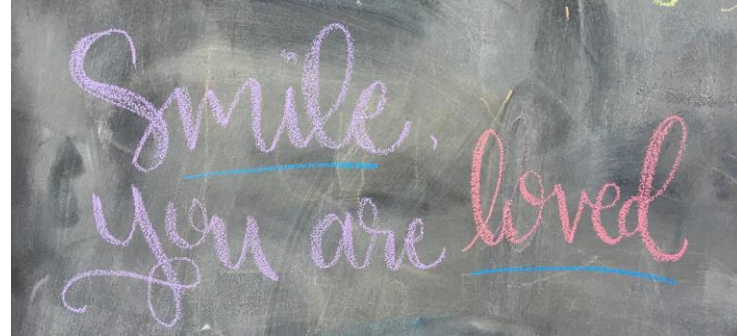 Smile,
you are loved